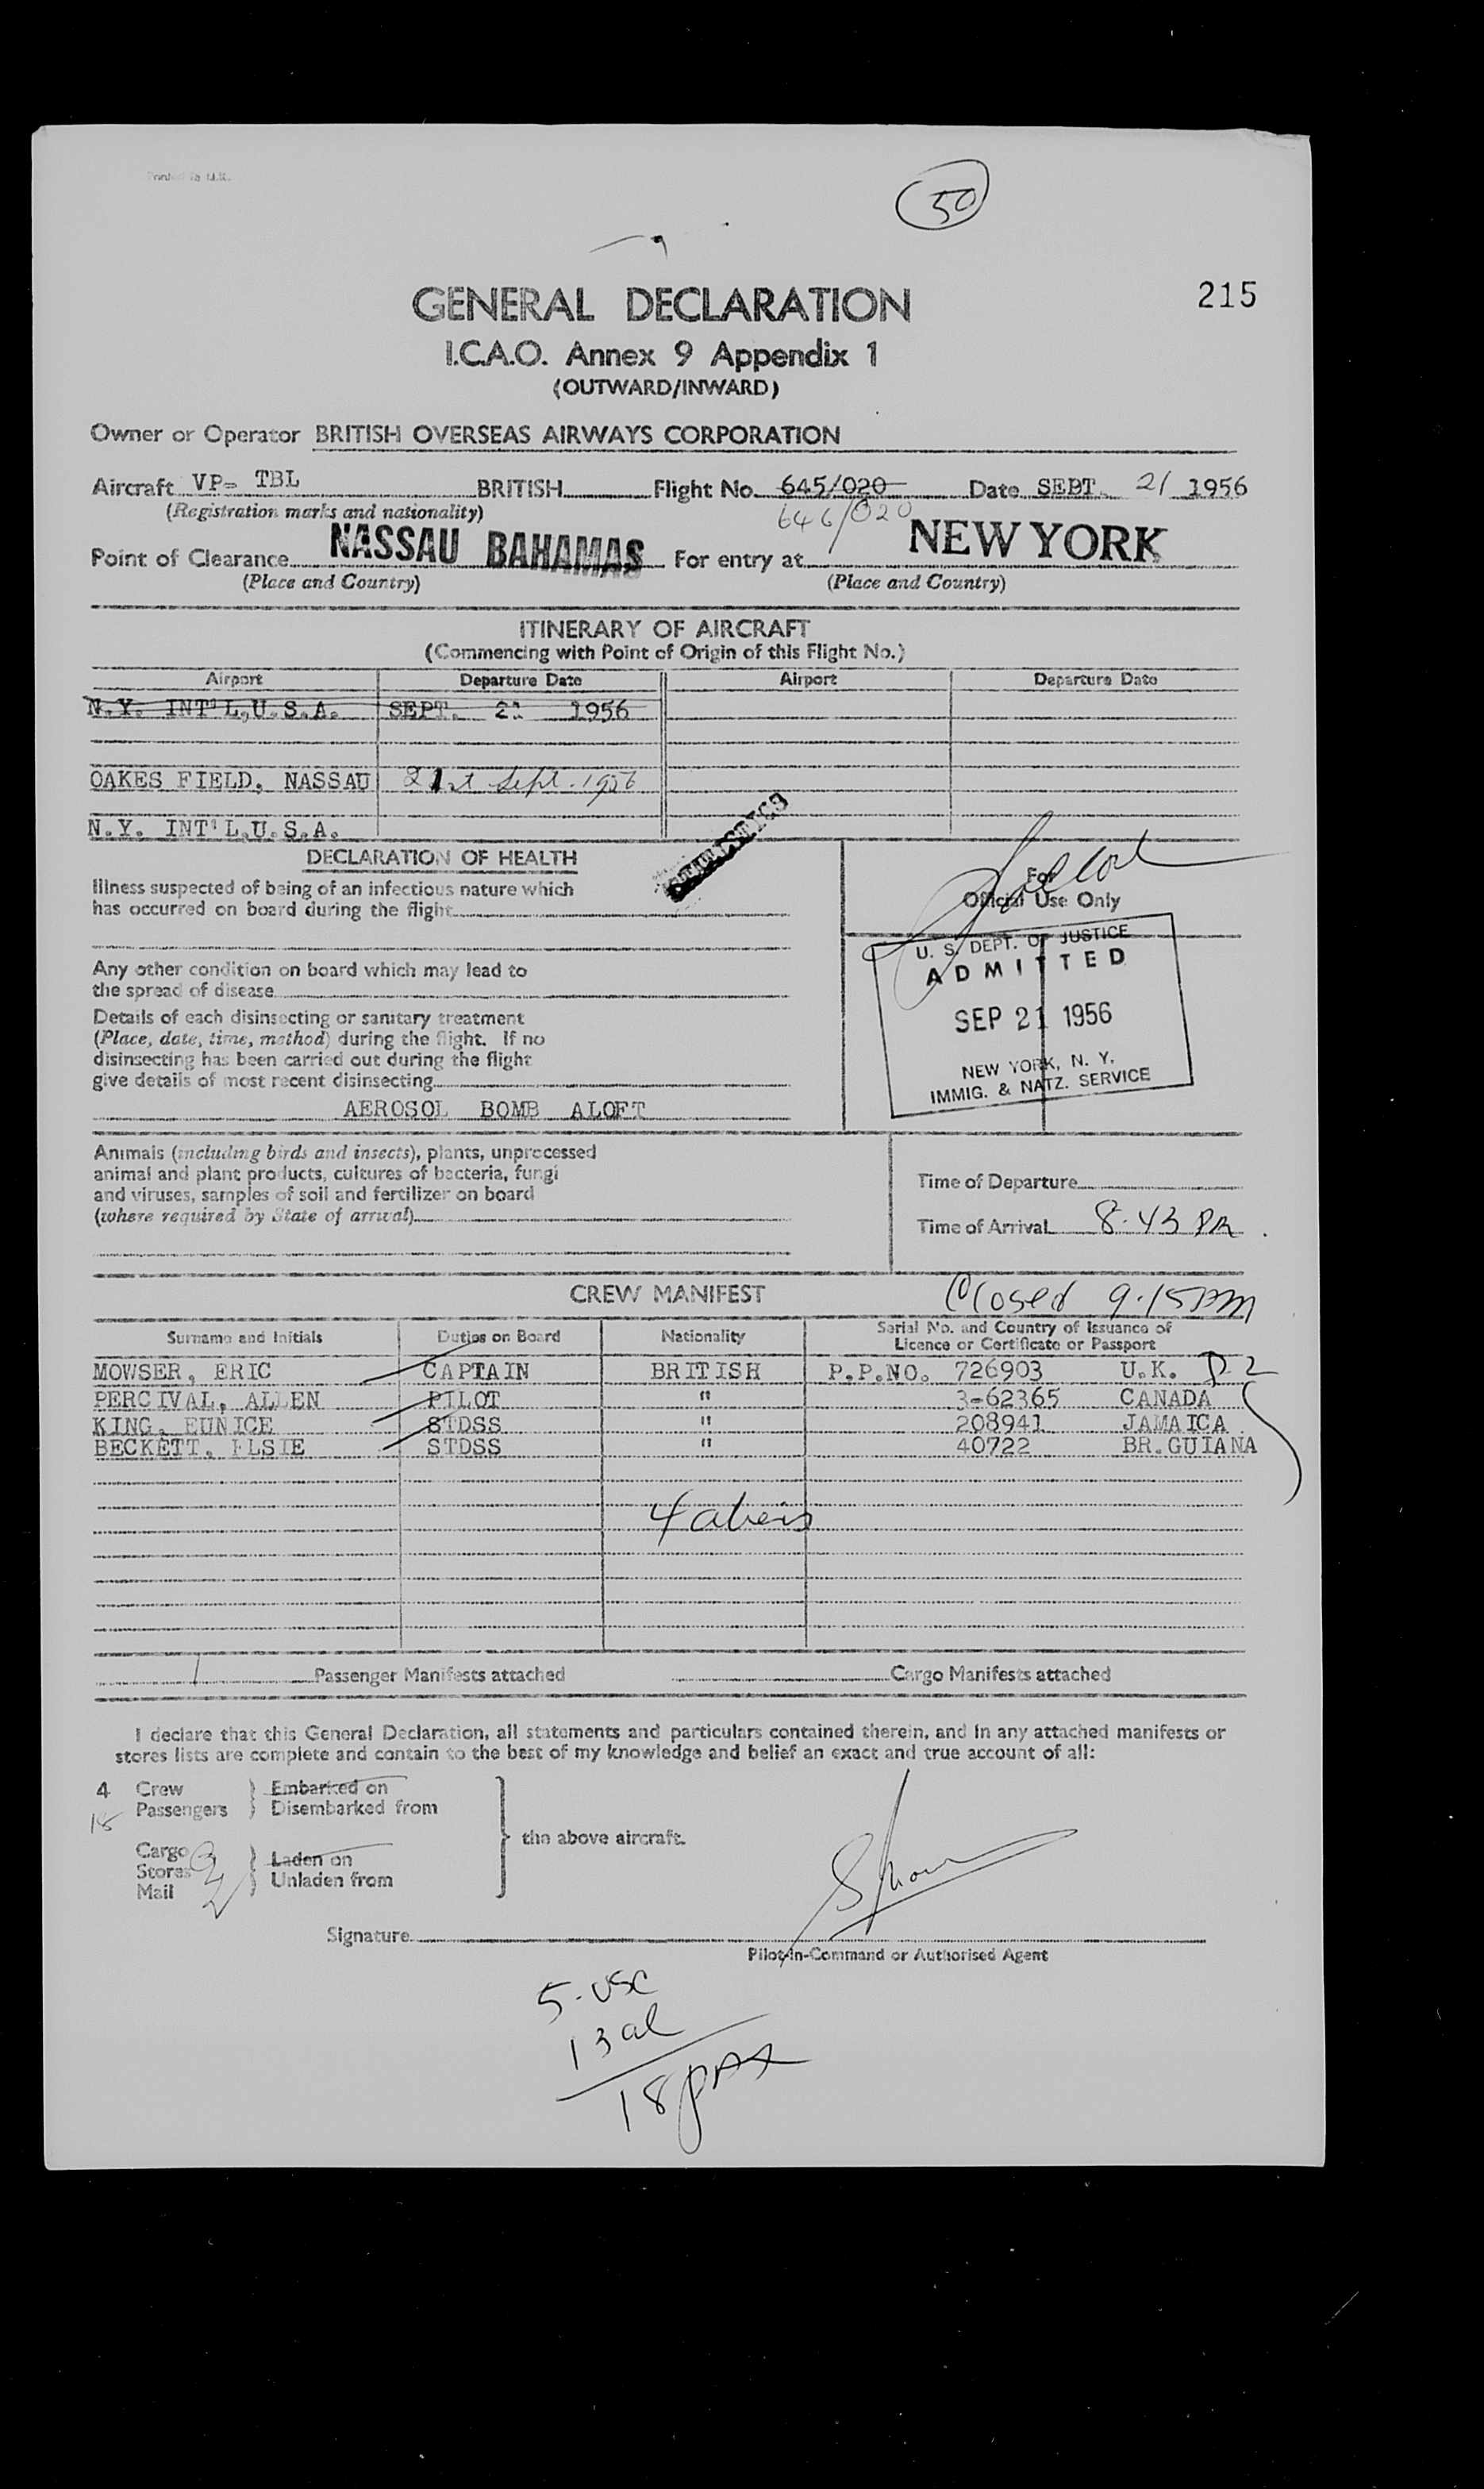 Printed in U.K.
50
GENERAL DECLARATION
215
I.C.A.O. Annex 9 Appendix 1
(OUTWARD/INWARD)
Owner or Operator BRITISH OVERSEAS AIRWAYS CORPORATION
Aircraft VP- TBL BRITISH Flight No. 645/020 Date SEPT. 21 1956
(Registration marks and nationality) 646/020
Point of Clearance NASSAU BAHAMAS For entry at NEW YORK
(Place and Country) (Place and Country)
ITINERARY OF AIRCRAFT
(Commencing with Point of Origin of this Flight No.)
Airport Departure Date Airport Departure Date
N.Y. INT'L,U.S.A. SEPT. 21 1956
OAKES FIELD, NASSAU 21st Sept. 1956
N.Y. INT'L,U.S.A.
DECLARATION OF HEALTH
Illness suspected of being of an infectious nature which
has occurred on board during the flight
For
Official Use Only
U. S. DEPT. OF JUSTICE
ADMITTED
SEP 21 1956
NEW YORK, N. Y.
IMMIG. & NATZ. SERVICE
Any other condition on board which may lead to
the spread of disease
Details of each disinsecting or sanitary treatment
(Place, date, time, method) during the flight. If no
disinsecting has been carried out during the flight
give details of most recent disinsecting
AEROSOL BOMB ALOFT
Animals (including birds and insects), plants, unprocessed
animal and plant products, cultures of bacteria, fungi
and viruses, samples of soil and fertilizer on board
(where required by State of arrival)
Time of Departure
Time of Arrival 8.43 PM
CREW MANIFEST
Closed 9.15 PM
Surname and Initials Duties on Board Nationality Serial No. and Country of Issuance of
Licence or Certificate or Passport
MOWSER, ERIC CAPTAIN BRITISH P.P.NO. 726903 U.K. D2
PERCIVAL, ALLEN PILOT " 3-62365 CANADA
KING, EUNICE STDSS " 208941 JAMAICA
BECKETT, ELSIE STDSS " 40722 BR.GUIANA
4 aliens
1 Passenger Manifests attached Cargo Manifests attached
I declare that this General Declaration, all statements and particulars contained therein, and in any attached manifests or
stores lists are complete and contain to the best of my knowledge and belief an exact and true account of all:
4 Crew Embarked on
18 Passengers Disembarked from
the above aircraft.
Cargo Laden on
Stores
Mail Unladen from
Signature
Pilot-in-Command or Authorised Agent
5-USC
13 al
18 pax